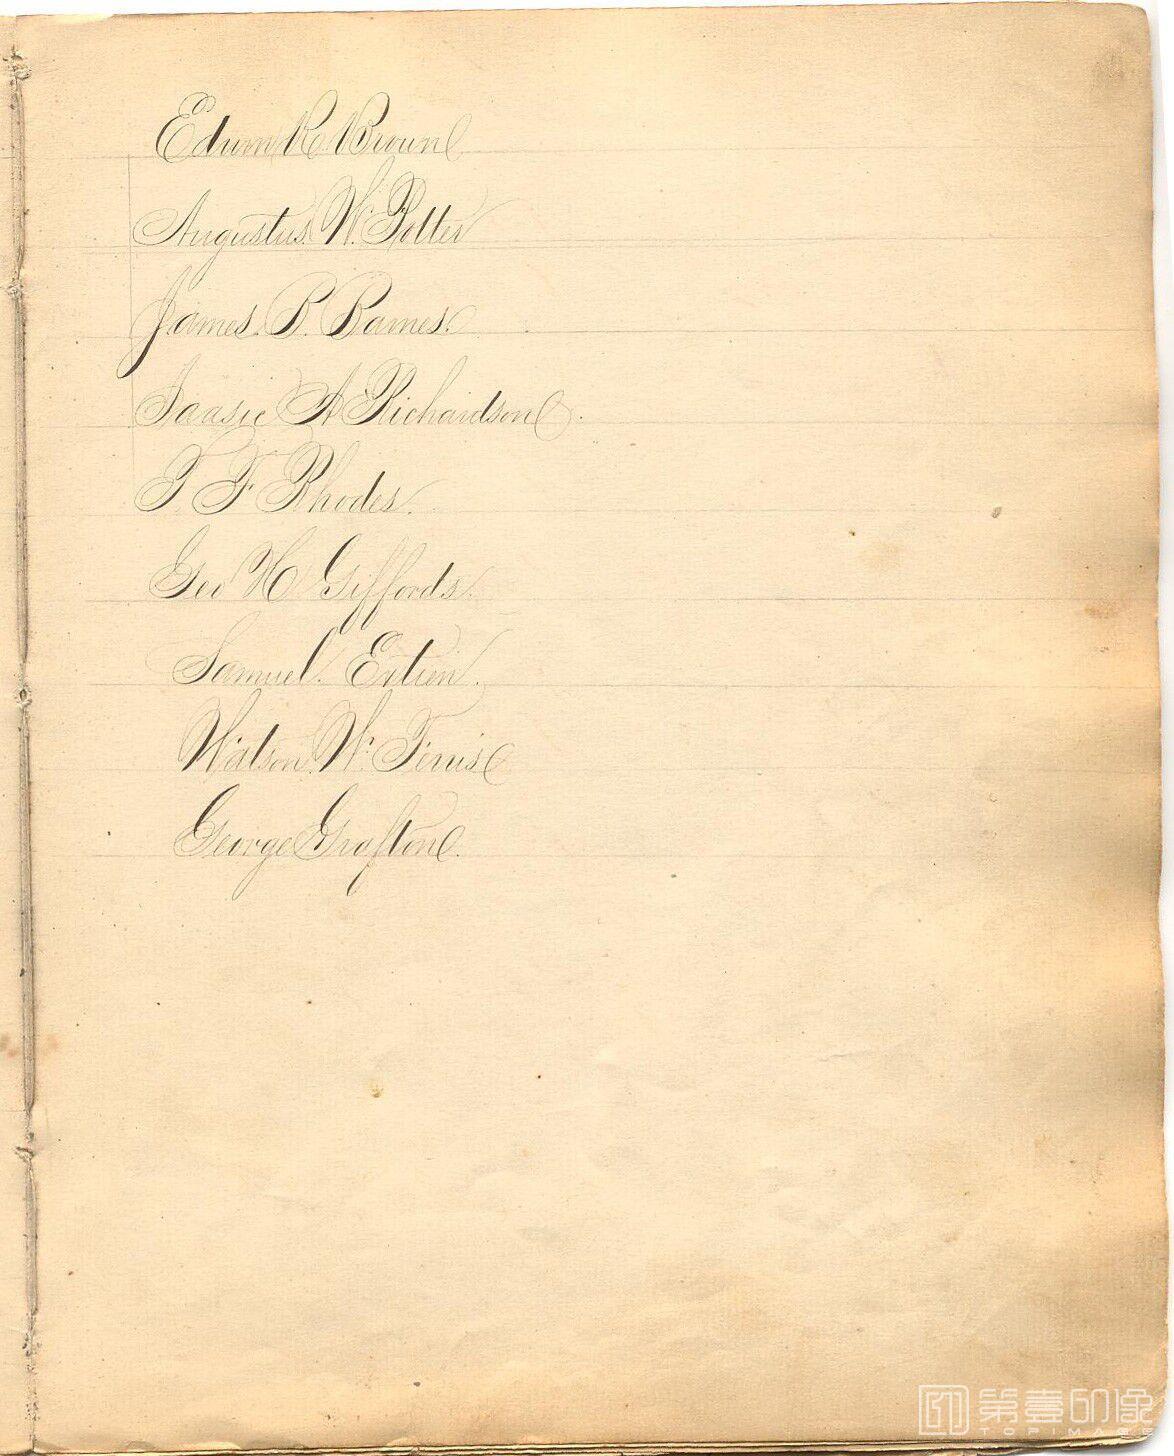 Edwin R Brown
Augustus W. Potter
James. B. Barnes.
Isasie A Richardson.
T. F Rhodes.
Geo H Giffords.
Samuel. Estien.
Watson. W. Ferris
George Grafton.
第壹印像
TOPIMAGE